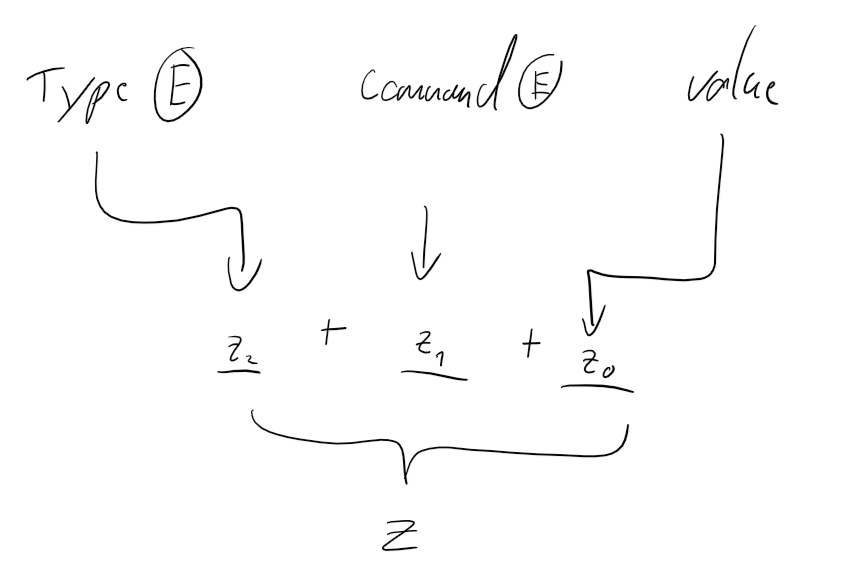 Type E command E value
z₂ + z₁ + z₀
z